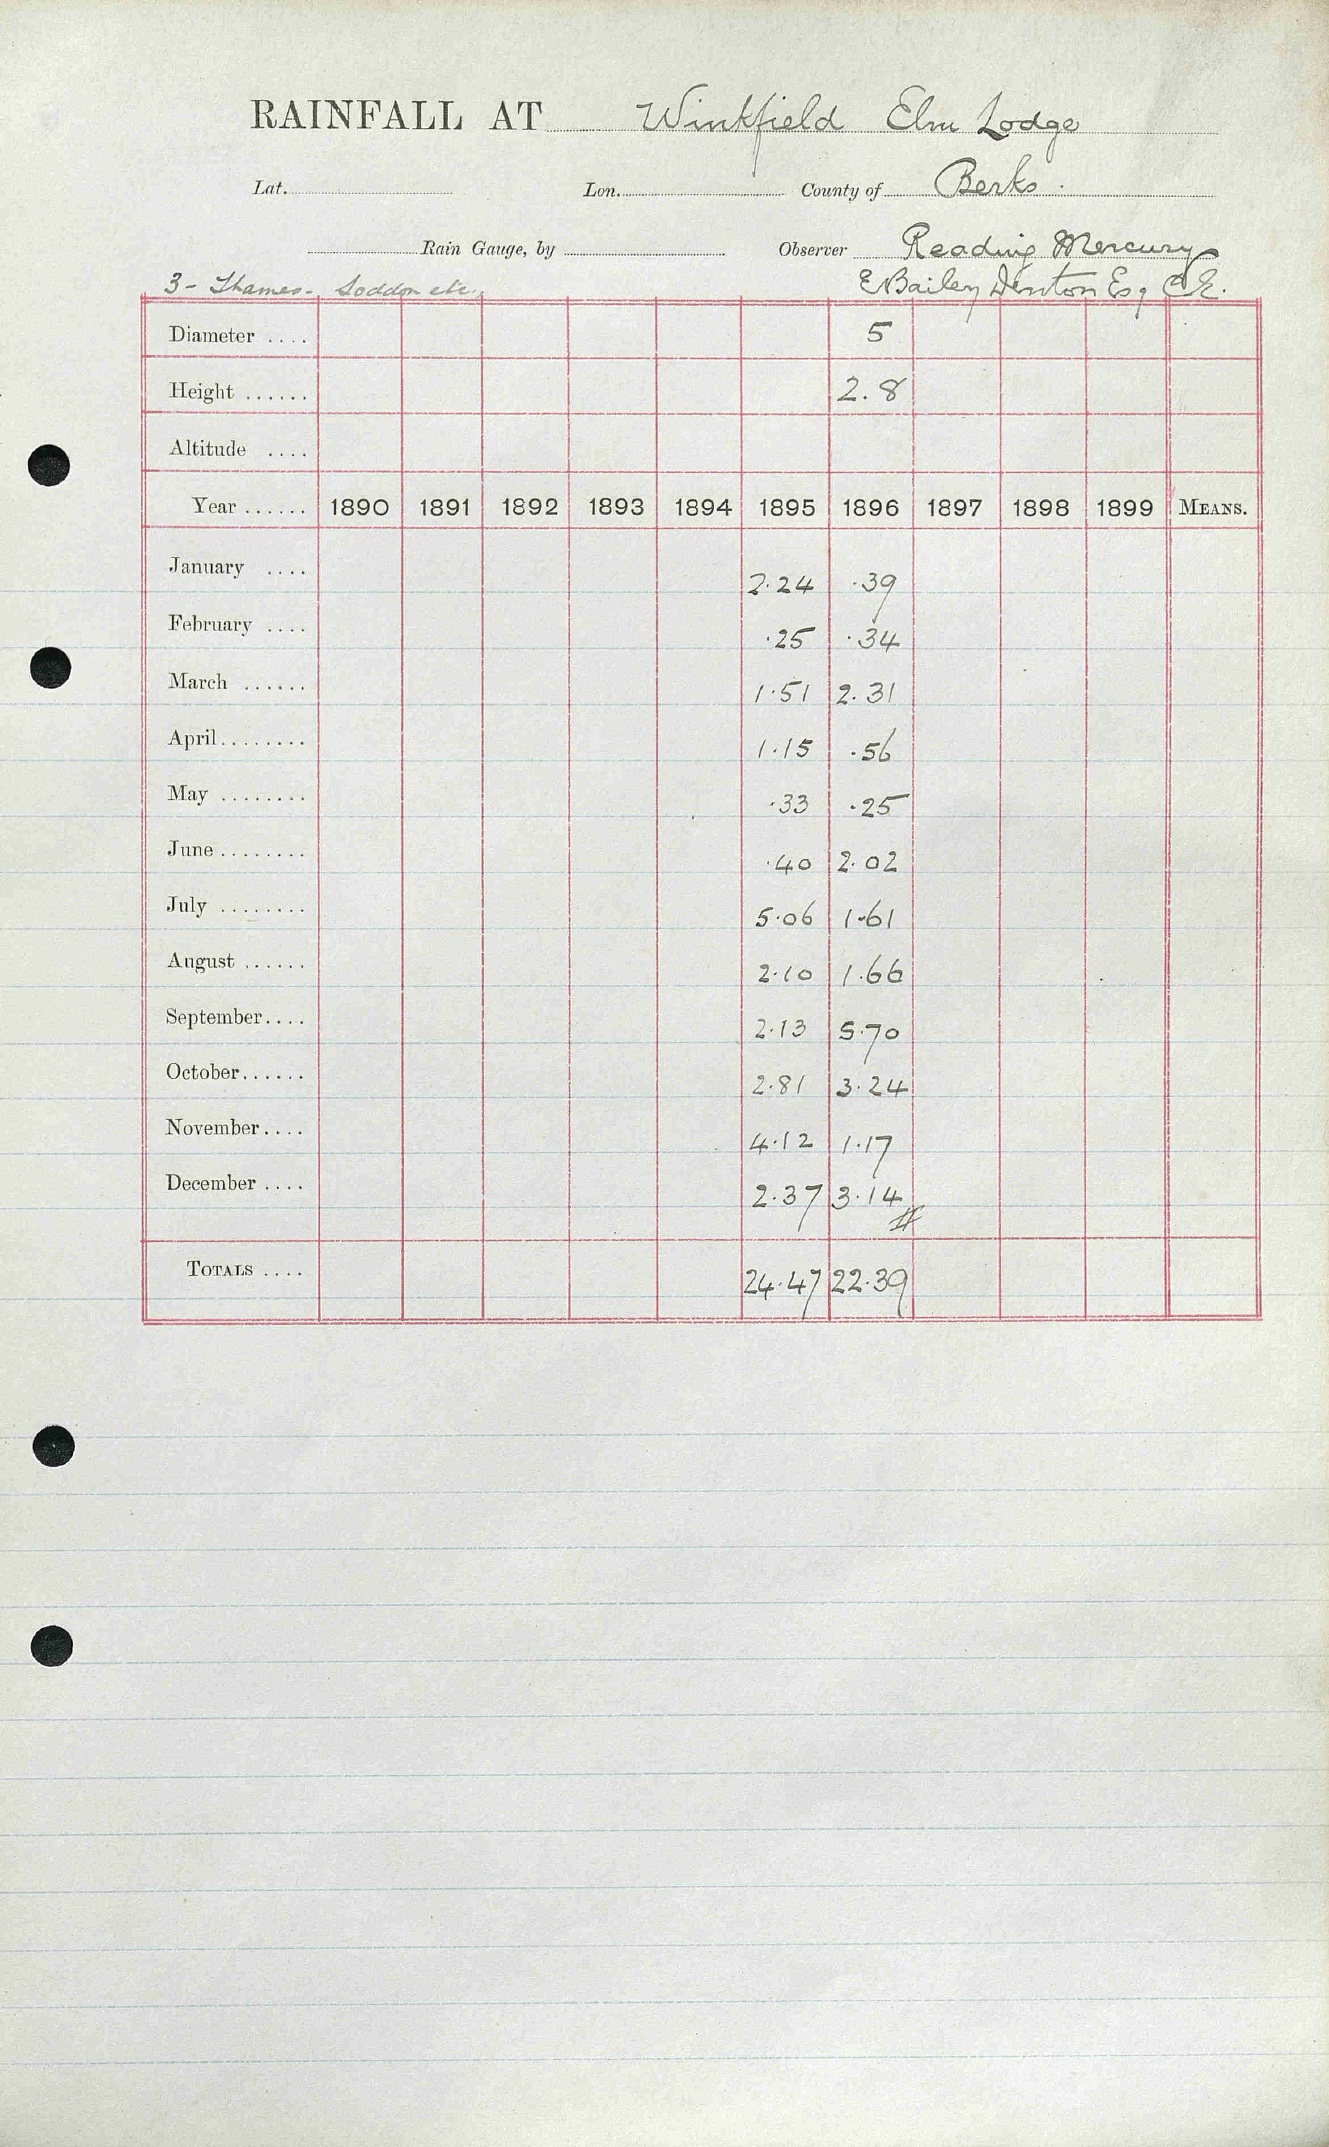 RAINFALL AT Winkfield Elm Lodge
Lat. Lon. County of Berks.
Rain Gauge, by Observer Reading Mercury
3 - Thames - Loddon etc. E Bailey Denton Esq C.E.
Diameter .... 5
Height ...... 2.8
Altitude ....
Year ...... 1890 1891 1892 1893 1894 1895 1896 1897 1898 1899 MEANS.
January .... 2.24 .39
February .... .25 .34
March ...... 1.51 2.31
April........ 1.15 .56
May ........ .33 .25
June........ .40 2.02
July ........ 5.06 1.61
August ...... 2.10 1.66
September.... 2.13 5.70
October...... 2.81 3.24
November.... 4.12 1.17
December .... 2.37 3.14
TOTALS .... 24.47 22.39